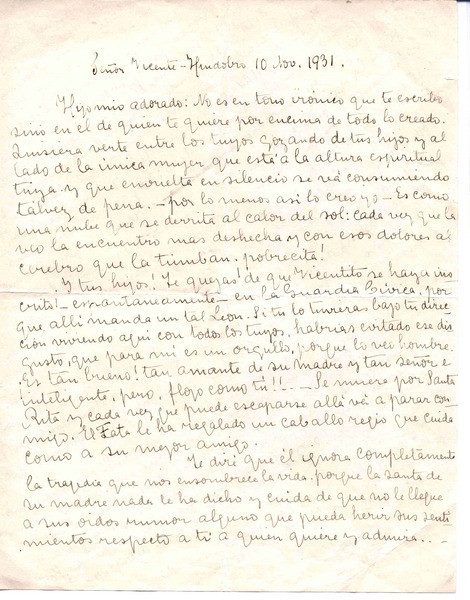 Señor Vicente Huidobro 10 Nov. 1931.
Hijo mio adorado: No es en tono irónico que te escribo
sino en el de quien te quiere por encima de todo lo creado.
Quisiera verte entre los tuyos gozando de tus hijos y al
lado de la única mujer que está a la altura espiritual
tuya y que envuelta en silencio se va consumiendo
talvez de pena. - por lo menos asi lo creo yo - Es como
una nube que se derrita al calor del sol: cada vez que la
veo la encuentro mas deshecha y con esos dolores al
cerebro que la tumban. pobrecita!
Y tus hijos! Te quejas! de que Vicentito se haya ins
crito! - espontaneamente - en la Guardia Cívica, por
que, alli manda un tal Leon. Si tu lo tuvieras bajo tu direc
ción viviendo aqui con todos los tuyos, habrias evitado ese dis
gusto, que para mi es un orgullo, porque lo veo hombre.
Es tan bueno! tan amante de su madre y tan señor e
inteligente, pero, flojo como tu!! -- Se muere por Santa
Rita y cada vez que puede escaparse allá vá a parar con
migo. El Tata le ha regalado un caballo regio que cuida
como a su mejor amigo.
Te diré que él ignora completamente
la tragedia que nos ensombrece la vida. porque la santa de
su madre nada le ha dicho y cuida de que no le llegue
a sus oidos rumor alguno que pueda herir sus senti
mientos respecto a ti a quien quiere y admira. . -